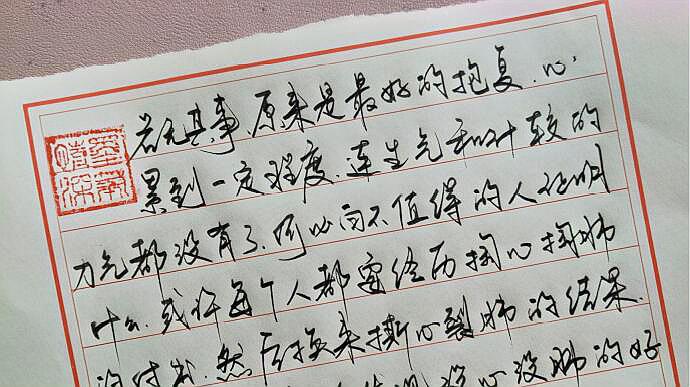 若无其事,原来是最好的抱复.心
累到一定程度.连生气和计较的
力气都没有了.何必向不值得的人证明
什么.或许每个人都要经历掏心掏肺
的付出.然后换来撕心裂肺的结果.
没心没肺的好